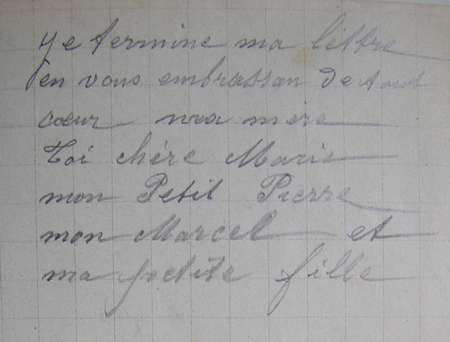 Je termine ma lettre
en vous embrassan de tout
cœur ma mère
Toi chère Marie
mon Petit Pierre
mon Marcel et
ma petite fille